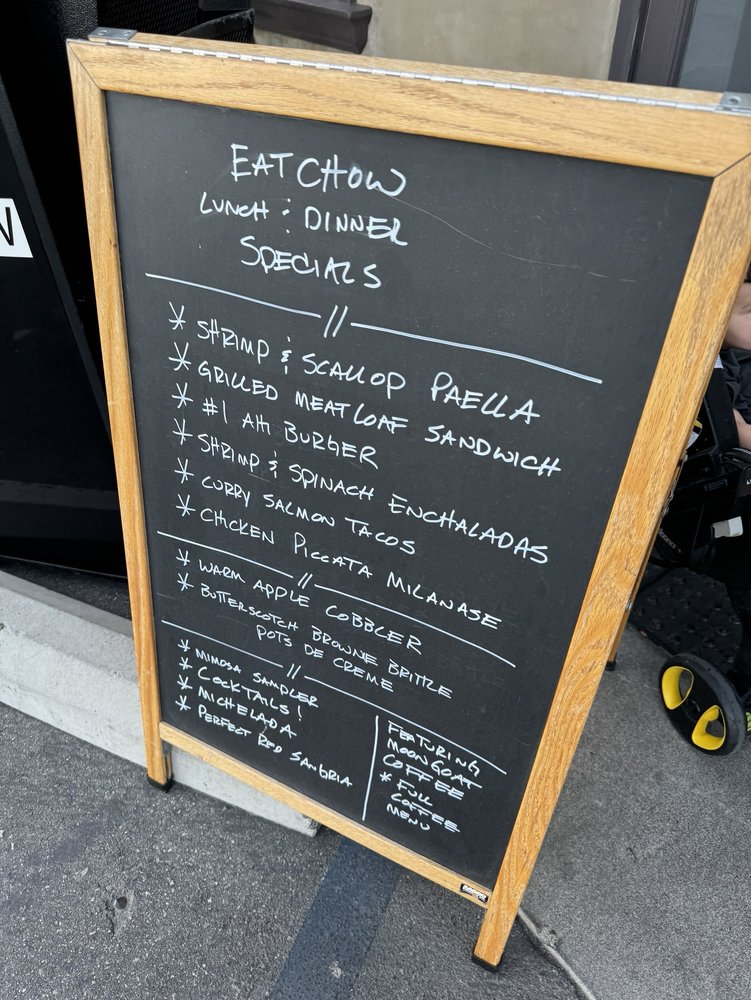 EAT CHOW
LUNCH & DINNER
SPECIALS
//
* SHRIMP & SCALLOP PAELLA
* GRILLED MEATLOAF SANDWICH
* #1 AHI BURGER
* SHRIMP & SPINACH ENCHALADAS
* CURRY SALMON TACOS
* CHICKEN PICCATA MILANASE
//
* WARM APPLE COBBLER
* BUTTERSCOTCH BROWNE BRITTLE
POTS DE CREME
//
* MIMOSA SAMPLER
* COCKTAILS!
* MICHELADA
* PERFECT RED SANGRIA
FEATURING
MOONGOAT
COFFEE
* FULL
COFFEE
MENU
N